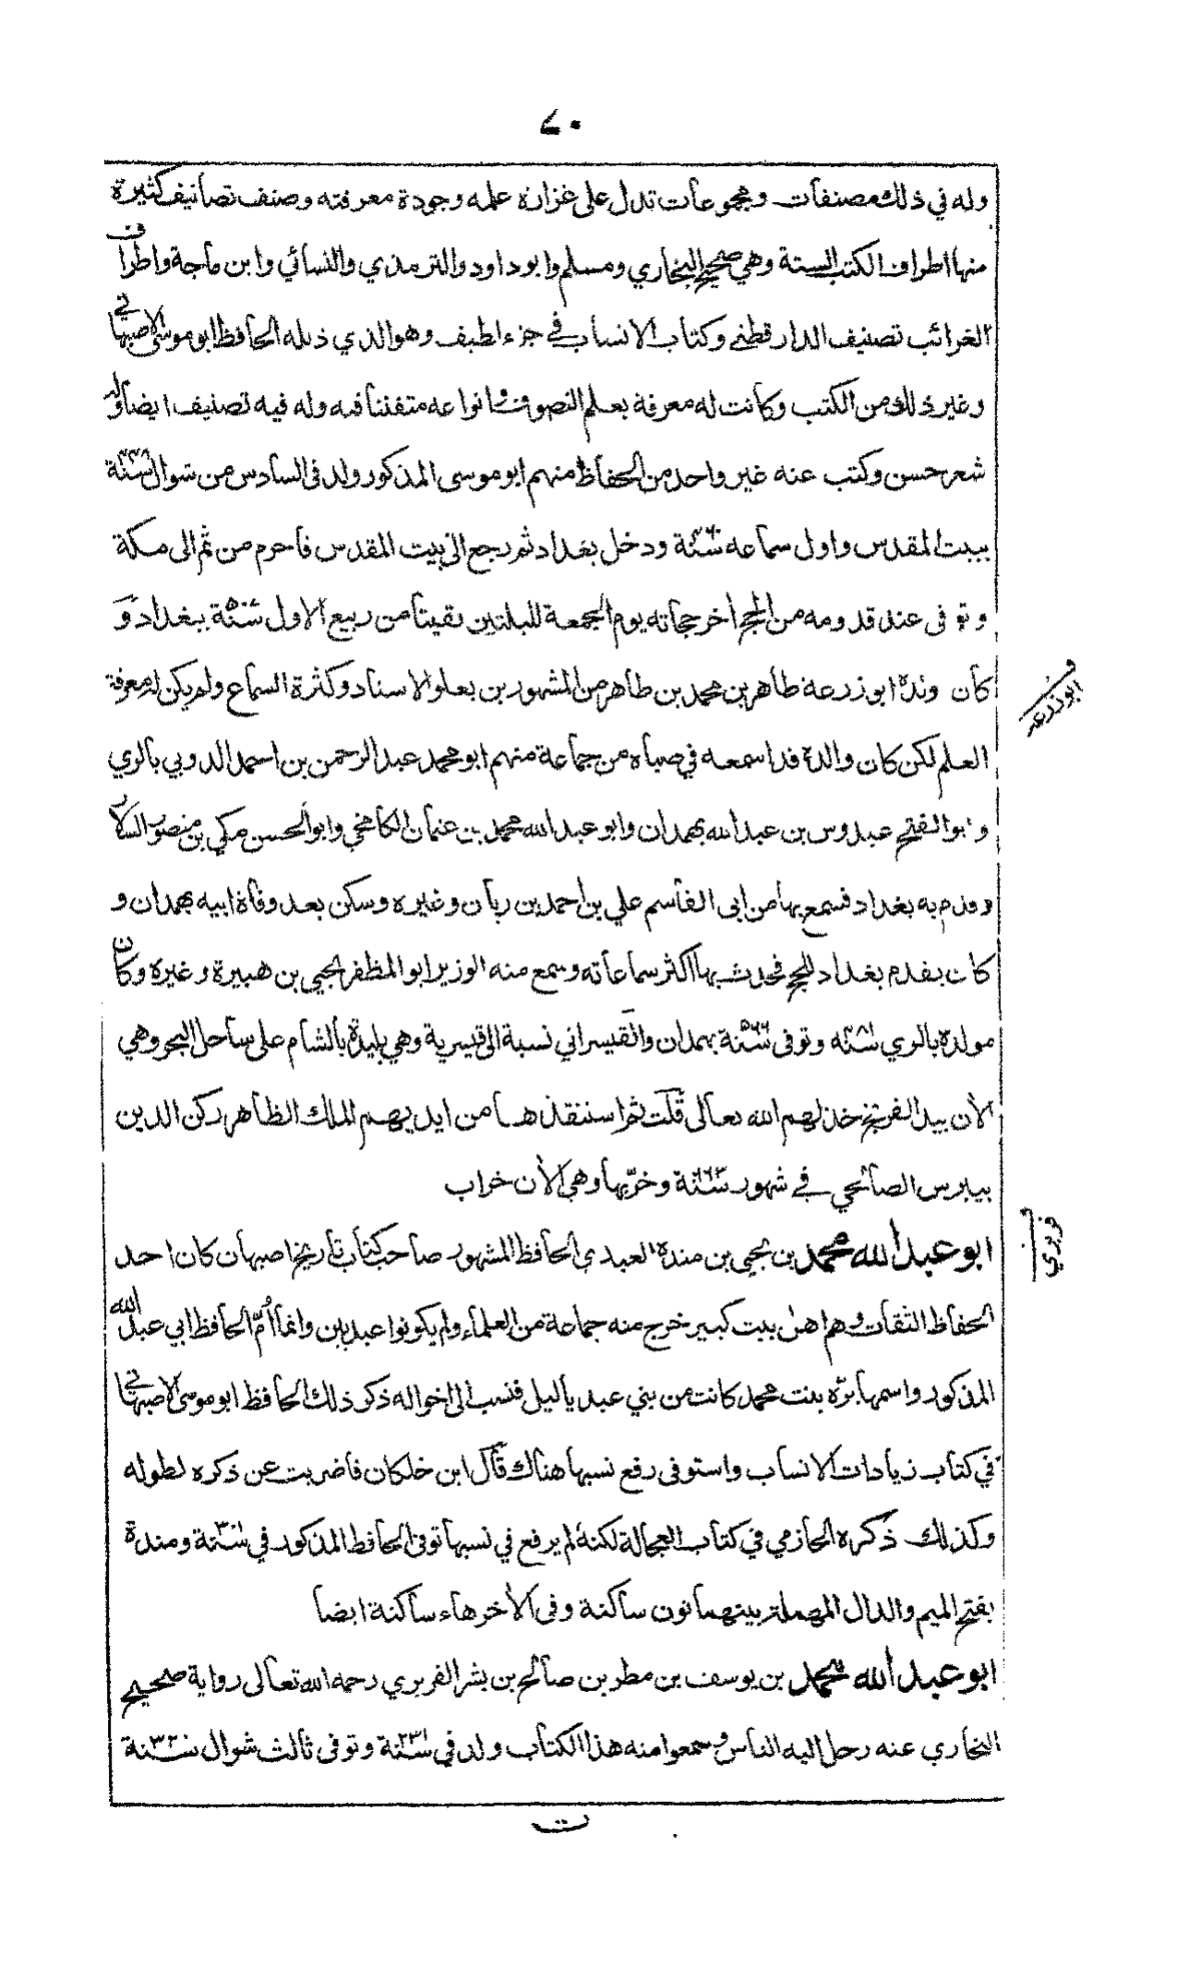 ٧٠
وله في ذلك مصنفات ومجموعات تدل على غزارة علمه وجودة معرفته وصنف تصانيف كثيرة
منها اطراف الكتب الستة وهي صحيح البخاري ومسلم وابو داود والترمذي والنسائي وابن ماجة واطراف
الغرائب تصنيف الدارقطني وكتاب الانساب في جزء لطيف وهو الذي ذيله الحافظ ابو موسى الاصبهاني
وغير ذلك من الكتب وكانت له معرفة بعلم التصوف وانواعه متفننا فيه وله فيه تصنيف ايضا وله
شعر حسن وكتب عنه غير واحد من الحفاظ منهم ابو موسى المذكور ولد في السادس من شوال سنة
ببيت المقدس واول سماعه سنة ودخل بغداد ثم رجع الى بيت المقدس فاحرم من ثم الى مكة
وتوفى عند قدومه من الحج اخر حجاته يوم الجمعة لليلتين بقيتا من ربيع الاول سنة ببغداد و
كان ولده ابو زرعة طاهر بن محمد بن طاهر من المشهورين بعلو الاسناد وكثرة السماع ولم يكن له معرفة
ابو زرعه
العلم لكن كان والده قد اسمعه في صباه من جماعة منهم ابو محمد عبد الرحمن بن احمد الدوبي بالري
وابو الفتح عبدوس بن عبد الله بهمدان وابو عبد الله محمد بن عثمان الكامخي وابو الحسن مكي بن منصور السلار
وقدم به بغداد فسمع بها من ابى القاسم علي بن احمد بن ريان وغيره وسكن بعد وفاة ابيه بهمدان و
كان يقدم بغداد للحج فحدث بها اكثر سماعاته وسمع منه الوزير ابو المظفر يحيى بن هبيرة وغيره وكان
مولده بالري سنة وتوفى سنة ٥٦٦ بهمدان والقيسراني نسبة الى قيسرية وهي بليدة بالشام على ساحل البحر وهي
الآن بيد الفرنج خذلهم الله تعالى قلت ثم استنقذها من ايديهم الملك الظاهر ركن الدين
بيبرس الصالحي في شهور سنة ٦٦٣ وخربها وهي الآن خراب
ابو عبد الله محمد بن يحيى بن منده العبدي الحافظ المشهور صاحب كتاب تاريخ اصبهان كان احد
الحفاظ الثقات وهم اهل بيت كبير خرج منه جماعة من العلماء ولم يكونوا عبديين وانما أمّ الحافظ ابي عبد الله
المذكور واسمها برّه بنت محمد كانت من بني عبد ياليل فنسب الى اخواله ذكر ذلك الحافظ ابو موسى الاصبهاني
في كتاب زيادات الانساب واستوفى رفع نسبها هناك قال ابن خلكان فاضربت عن ذكره لطوله
وكذلك ذكره الحازمي في كتاب العجالة لكنه لم يرفع في نسبها توفى الحافظ المذكور في سنة ٣٠١ ومندة
بفتح الميم والدال المهملة بينهما نون ساكنة وفي الآخر هاء ساكنة ايضا
ابو عبد الله محمد بن يوسف بن مطر بن صالح بن بشر الفربري رحمه الله تعالى رواية صحيح
فربري
البخاري عنه رحل اليه الناس وسمعوا منه هذا الكتاب ولد في سنة ٢٣١ وتوفى ثالث شوال سنة ٣٢٠
ت